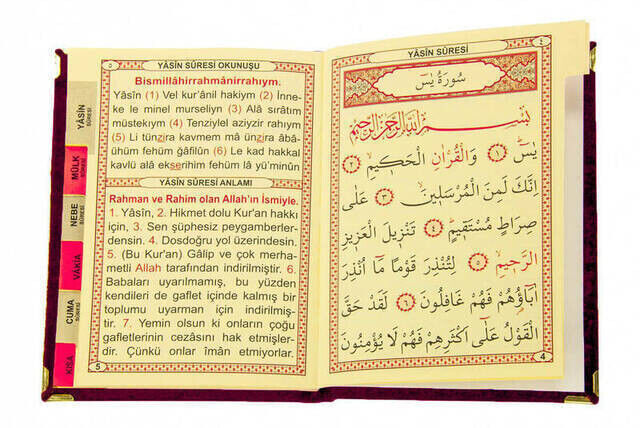 YÂSÎN SÛRESİ
٤
سورة يس
بِسْمِ اللّٰهِ الرَّحْمٰنِ الرَّحِيمِ
يٰسٓ ﴿١﴾ وَالْقُرْاٰنِ الْحَكِيمِ ﴿٢﴾
اِنَّكَ لَمِنَ الْمُرْسَلِينَ ﴿٣﴾ عَلٰى
صِرَاطٍ مُسْتَقِيمٍ ﴿٤﴾ تَنْزِيلَ الْعَزِيزِ
الرَّحِيمِ ﴿٥﴾ لِتُنْذِرَ قَوْمًا مَٓا اُنْذِرَ
اٰبَٓاؤُ۬هُمْ فَهُمْ غَافِلُونَ ﴿٦﴾ لَقَدْ حَقَّ
الْقَوْلُ عَلٰٓى اَكْثَرِهِمْ فَهُمْ لَا يُؤْمِنُونَ
4
٥
YÂSÎN SÛRESİ OKUNUŞU
Bismillâhirrahmânirrahıym.
Yâsîn (1) Vel kur'ânil hakiym (2) İnne-
ke le minel murseliyn (3) Alâ sırâtım
müstekıym (4) Tenziylel aziyzir rahıym
(5) Li tünzira kavmem mâ ünzira âbâ-
ühüm fehüm gâfilûn (6) Le kad hakkal
kavlü alâ ekserihim fehüm lâ yü'minûn
YÂSÎN SÛRESİ ANLAMI
Rahman ve Rahim olan Allah'ın İsmiyle.
1. Yâsîn, 2. Hikmet dolu Kur'an hakkı
için, 3. Sen şüphesiz peygamberler-
densin. 4. Dosdoğru yol üzerindesin.
5. (Bu Kur'an) Gâlip ve çok merha-
metli Allah tarafından indirilmiştir. 6.
Babaları uyarılmamış, bu yüzden
kendileri de gaflet içinde kalmış bir
toplumu uyarman için indirilmiş-
tir. 7. Yemin olsun ki onların çoğu
gafletlerinin cezasını hak etmişler-
dir. Çünkü onlar îmân etmiyorlar.
5
YÂSİN
SÛRESİ
MÜLK
SÛRESİ
NEBE
SÛRESİ
VÂKIA
CUMA
SÛRESİ
KISA